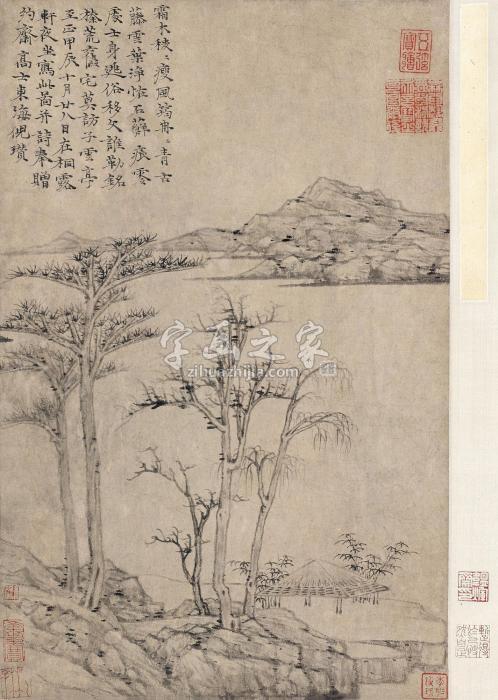 霜木棱々瘦風篁冉々青古
藤雲葉淨怪石蘚痕零
處士身逃俗移文誰勒銘
榛荒宅莫訪子雲亭
至正甲辰十月廿八日在桐露
軒夜坐寫此圖并詩奉贈
約齋高士東海倪瓚
字画之家
zihuazhijia.com